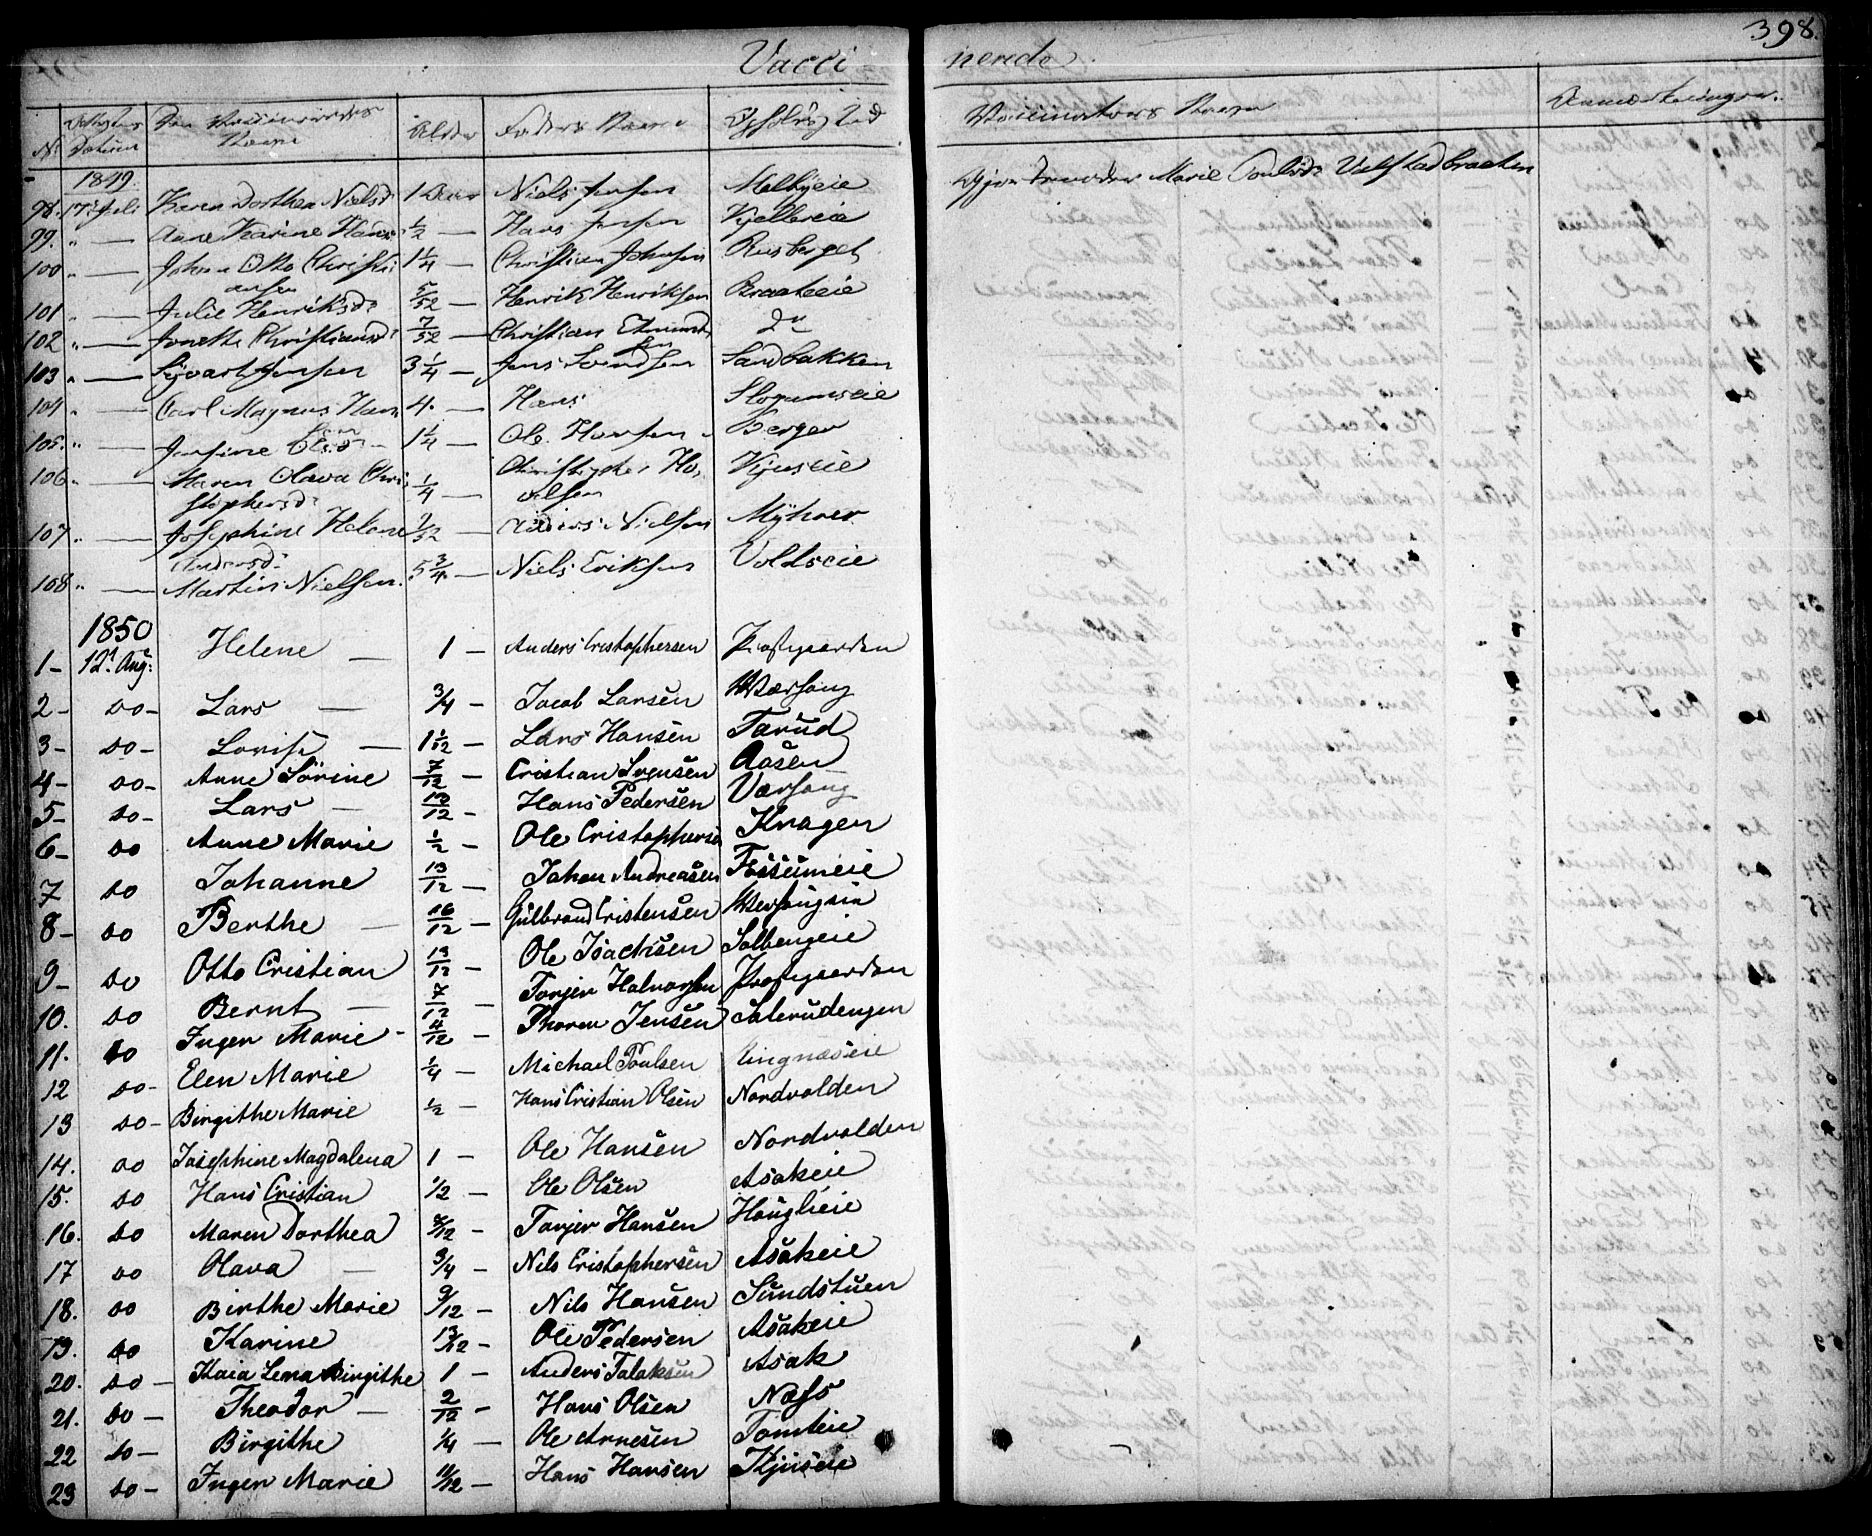 398.
Vacci nerede
No Attestens Datum Den Vaccineredes Navn Alder Faders Navn Opholds Sted Vaccinateurs Navn Anmærkninger.
1849.
98. 17de Juli Karen Dorthea Nielsd. 1 Aar Niels Jensen Melbyeie Gjordemoder Marie Poulsd.
99. " — Anne Karine Hans 1/2 — Hans Jensen Kjellereie
100 " — Johan Otto Christi 1 1/4 — Christian Johnsen Riisberget
ansen
101 " — Julie Henriksd. 5/52 — Henrik Henriksen Braateeie
102 " — Jonette Christiansd. 7/52 — Christian Edmund Do
sen
103 " — Syvart Jensen 3 1/4 — Jens Svendsen Sandbakken
104 " — Carl Magnus Hans 4. — Hans
sen
105. " — Josine Olsd. 1 1/4 — Ole Hansen Berger
106 " — Maren Olava Chri 1/4 — Christopher Ha Kjuseie
stophersd. velsen
107 " — Josephine Helene Anders Nielsen Myhrer
Andersd.
108 " — Martin Nielsen. 5 3/4 — Niels Eriksen Voldseie
1850
1 - 12t Aug: Helene — 1 - Anders Cristophersen Præstgaarden
2 - do - Lars — 3/4 - Jacob Larsen Værsøug
3 - do - Lovise — 1 1/12 - Lars Hansen Tarud
4 - do - Anne Sörine 7/12 - Cristian Svensen Aasen
5 - do - Lars — 10/12 - Hans Pedersen Værsøug
6 - do Anne Marie 1/2 - Ole Cristophersen Kragen
7 do Johanne 13/12 — Johan Andreasen Fossumeie
8 - do Berthe — 16/12 - Gulbrand Cristensen Wersøugeie
9 - do Otto Cristian 13/12 - Ole Isachsen Solbergeie
10. do Bernt — 7/12 - Torjer Halvorsen Præstgaarden
11. do Inger Marie - 4/12 - Thoren Jensen Salerudengen
12 do - Elen Marie 1/4 - Michael Poulsen Ringnæseie
13 do - Birgithe Marie 1/2 - Hans Cristian Olsen Nordvolden
14. do Josephine Magdalena 1 - Ole Hansen Nordvolden
15. do Hans Cristian 1/2 - Ole Olsen Asakeie
16. do Maren Dorthea 8/12 - Torjer Hansen Houglieie
17 do Olava — 3/4 - Nils Cristophersen Asakeie
18. do Birthe Marie 9/12 - Nils Hansen Sundstuen
19. do Karine 13/12 - Ole Pedersen Asakeie
20. do - Kaia Lena Birgithe 1 - Anders Talaksen Asak
21. do - Theodor — 2/12 - Hans Olsen Næss
22 do - Birgithe 1/4 — Ole Arnesen Tomteie
23 do - Inger Marie 11/12 - Hans Hansen Kjuseie